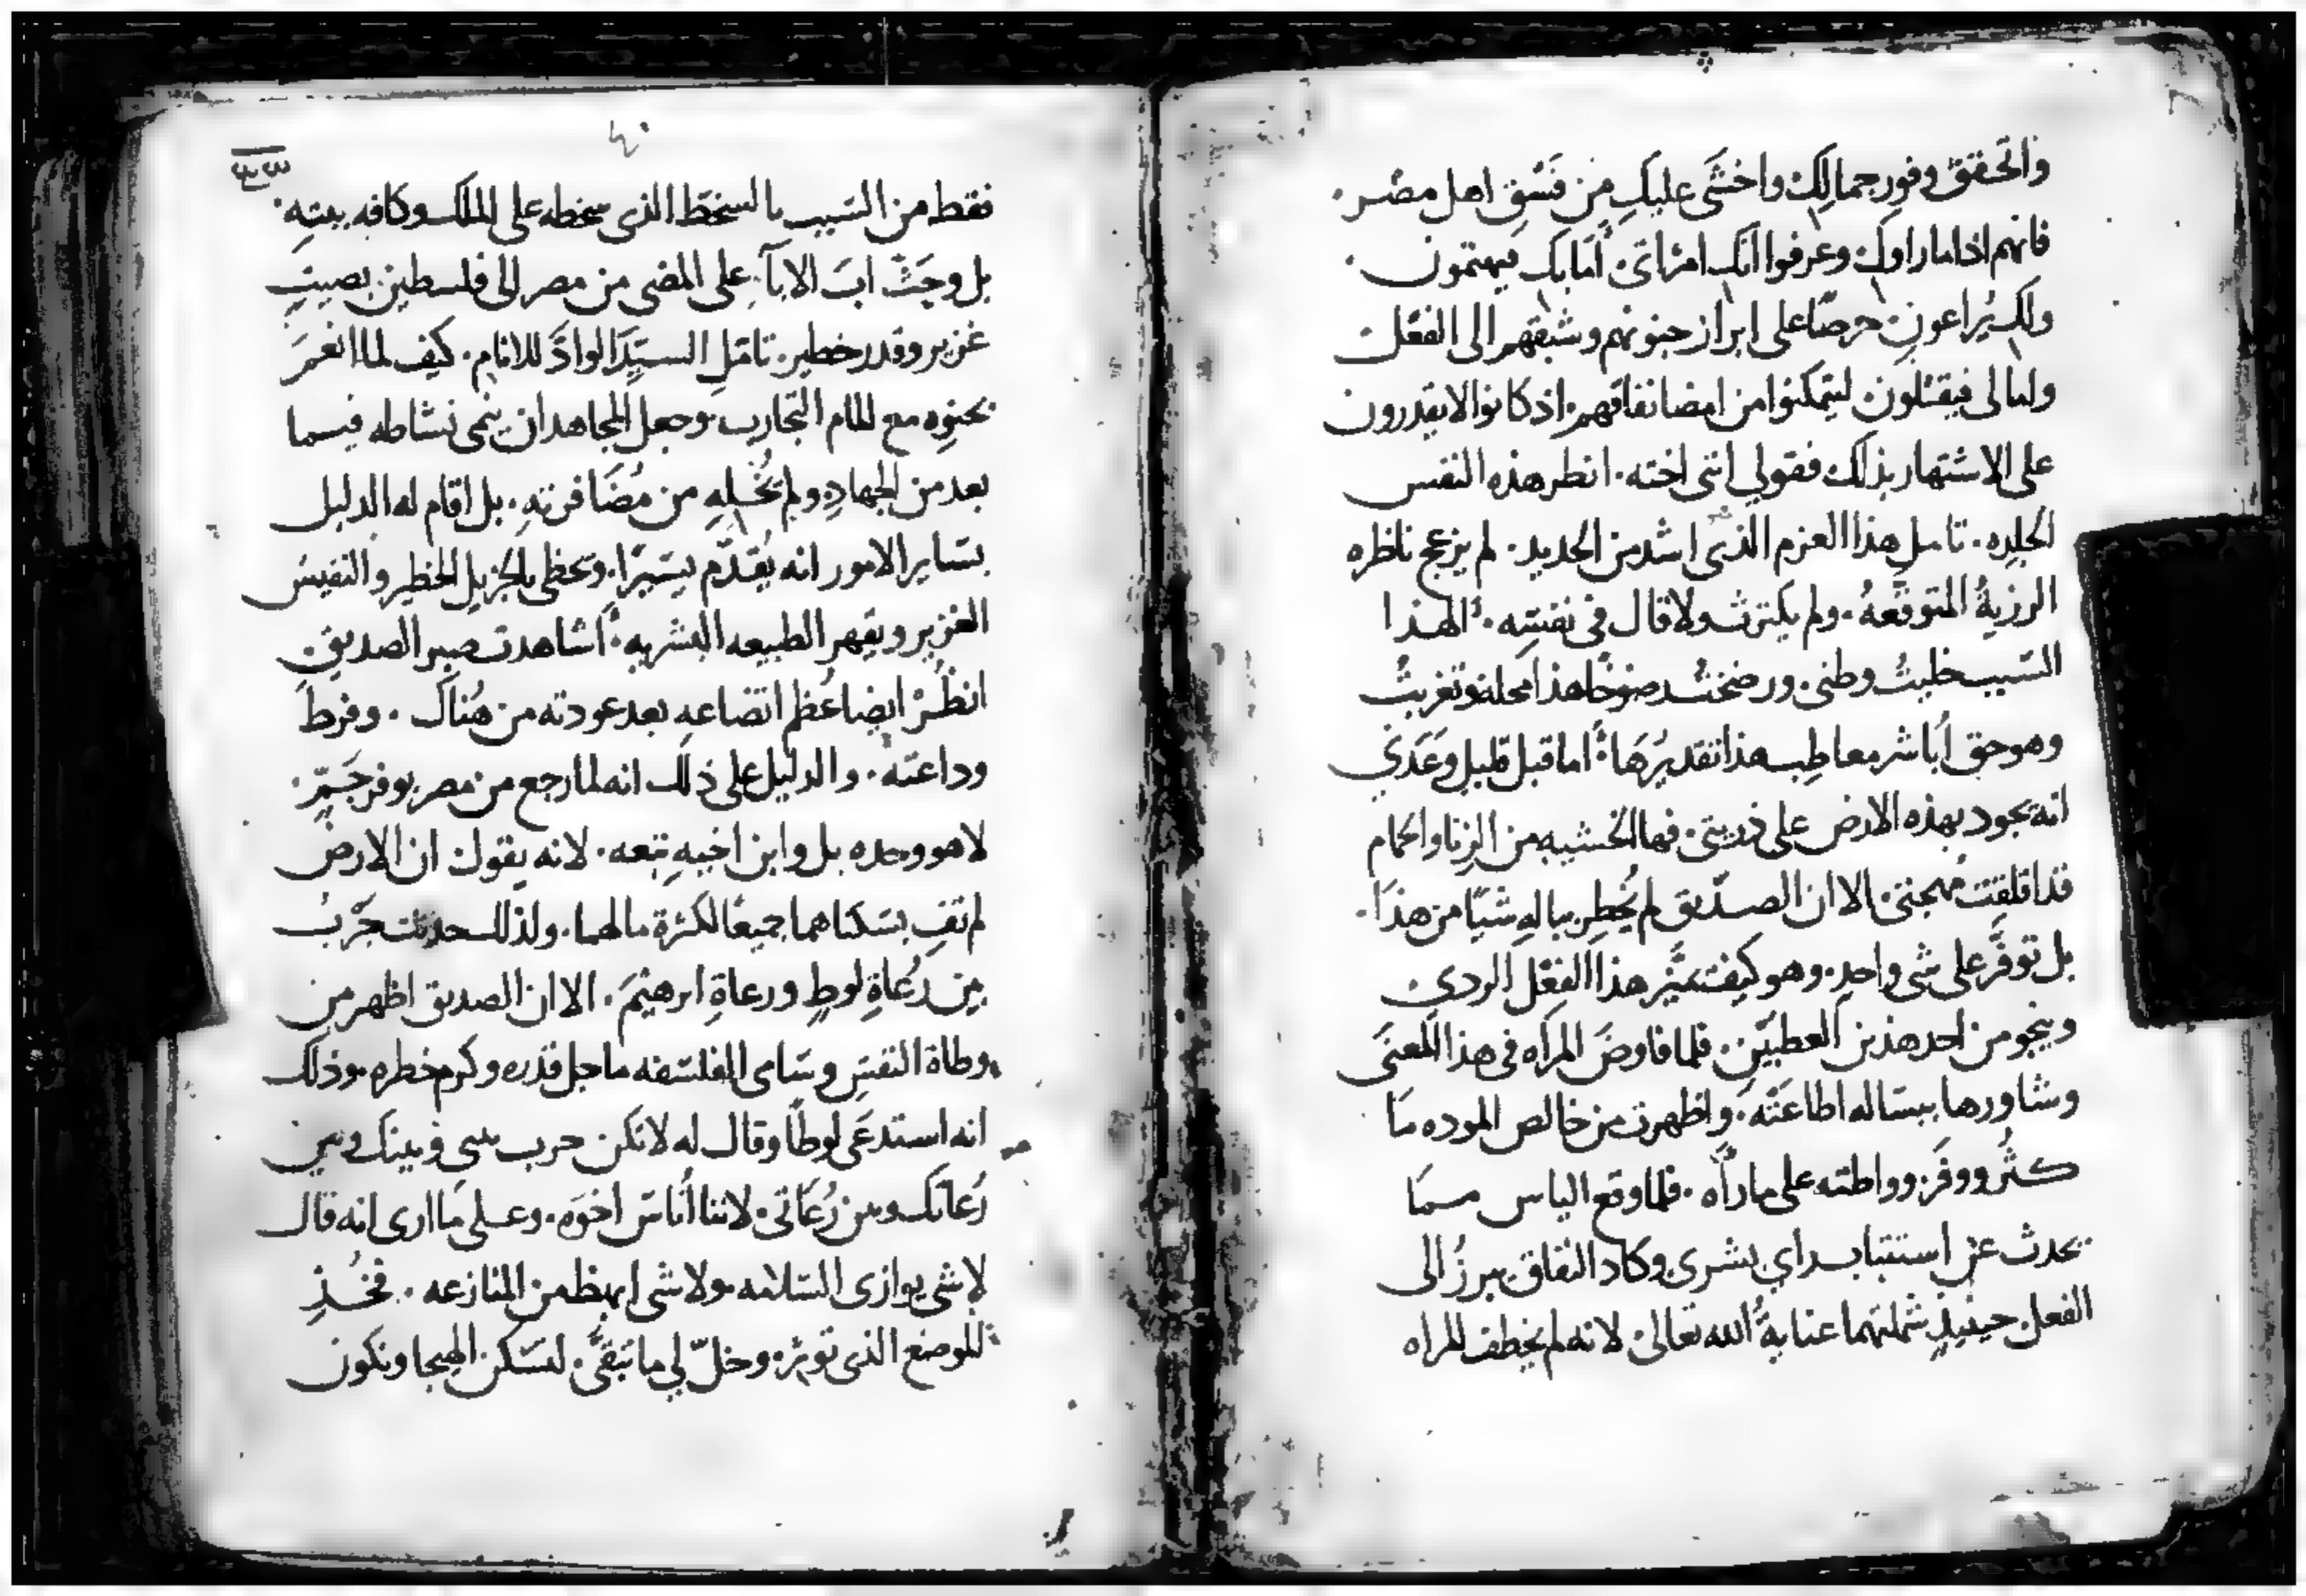 واتحقق وفور جمالك واخشى عليك من فسق اهل مصر.
فانهم اذا ما راوك وعرفوا انك امراتي أما بك فيهتمون.
ولك يراعون حرصًا على ابراز جنونهم وشبقهم الى الفعل
ولما لي فيقتلون ليتمكنوا من امضا نفاقهم. اذ كانوا لا يقدرون
على الاشتهار بذلك فقولي انني اخته. انظر هذه النفس
الجلده. تامل هذا العزم الذي اشد من الحديد. لم يزعج ناظره
الرزيةُ المتوقعهُ. ولم يكترث ولا قال في نفسه. ألهذا
السبب خليتُ وطني. ورضختُ هذا محله وتغربتُ
وهو حق أباشر معاطب هذا تقديرها. أما قبل قليل وعدني
انه يجود بهذه الارض على ذريتي. فها الخشيه من الزنا والحمام
قد اقلقت مهجتي الا ان الصدّيق لم يُخطر بباله شيًا من هذا.
بل توفَّر على شي واحد. وهو كيف يميّز هذا الفعل الردي
وينجو من احد هذين العطبين. فلما فاوض المراه في هذا المعنى
وشاورها ببساله اطاعَتْه. واظهرت من خالص الموده ما
كثُر ووفَر وواطته على ما رأه. فلما وقع الياس مما
يحدث عن استتباب راي بشري وكاد النفاق يبرزُ الى
الفعل حينيذٍ شملتهما عنايةُ الله تعالى لانه لم يخطف المراه
٤٠
فقط من السبب بالسخط الذي سخطه على الملك وكافه بيته.
بل وحَثّ ابَ الابآ على المضي من مصر الى فلسطين بصيتٍ
غزير وقدر خطير. تامل السيّدَ الوادَّ للانام. كيف لما انغمرَ
بحنوه مع المام التجارب وجعل المجاهد ان ينمى نشاطه فيما
بعد من الجهادِ ولم يُخله من مُضافرته. بل اقام له الدليل
بساير الامور انه يُقدّم يسيرًا. ويحظى بالجزيل الخطير والنفيس
الغزير ويقهر الطبيعه البشريه. أشاهدت صبر الصديق
انظُرْ ايضا عُظم اتضاعه بعد عودته من هُناك. وفرط
وداعته. والدليل على ذلك انه لما رجع من مصر بوفر جَمّ.
لا هو وحده بل وابن اخيه تبعه. لانه يقول ان الارض
لم تفِ بسكناهما جميعًا لكثرة مالهما. ولذلك حدثت حَرْبُ
بين رُعاةِ لوطٍ ورعاةِ ابرهيمَ. الا ان الصديق اظهر من
وطاة النفس وسامى الفلسفه ما جل قدره وكرم خطره وذلك
انه استدعى لوطًا وقال له لا تكن حرب بيني وبينك وبين
رُعاتك وبين رُعَاتي. لاننا أُناسٌ اخوَه. وعلى ما ارى انه قال
لا شي يوازي السلامه ولا شي ابهظ من المنازعه. فخُذِ
الموضع الذي توثر. وخلّ لي ما تبقَّى. لتسكن الهيجا ونكون